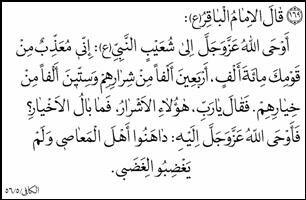 (١٦٩) قَالَ الإِمَامُ الْبَاقِرُ (ع):
أَوْحَى اللهُ عَزَّوَجَلَّ إِلَى شُعَيْبٍ النَّبِيِّ (ع): إِنّي مُعَذِّبٌ مِنْ
قَوْمِكَ مِائَةَ أَلْفٍ، أَرْبَعِينَ أَلْفاً مِنْ شِرارِهِمْ وَسِتّينَ أَلْفاً مِنْ
خِيارِهِمْ. فَقالَ يارَبِّ، هٰؤُلاءِ الْأَشْرارُ، فَمَا بَالُ الْأَخْيارِ؟
فَأَوْحَى اللهُ عَزَّوَجَلَّ إِلَيْهِ: دَاهَنُوا أَهْلَ الْمَعاصي وَلَمْ
يَغْضِبُو الِغَضَبي.
الكافي/٥/٥٦